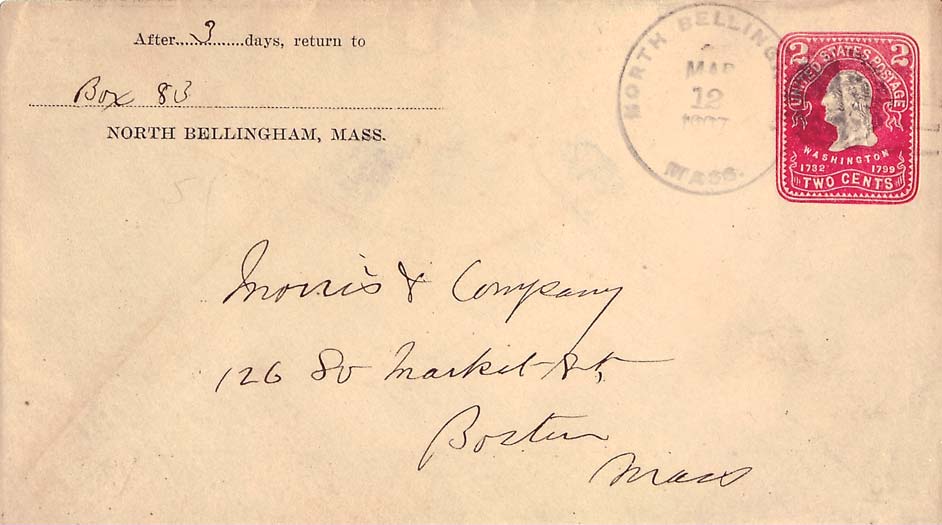 After 3 days, return to
Box 83
NORTH BELLINGHAM, MASS.
NORTH BELLINGHAM
MAR
12
1907
MASS.
2 2
UNITED STATES POSTAGE
WASHINGTON
1732 1799
TWO CENTS
Morris & Company
126 So Market St,
Boston
Mass